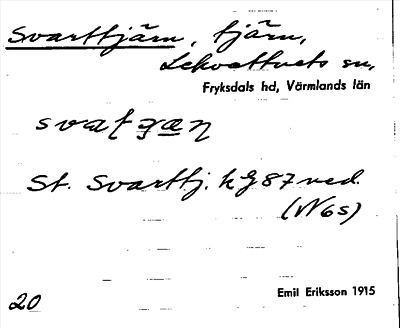 Svarttjärn, tjärn,
Lekvattnets sn,
Fryksdals hd, Värmlands län
St. Svarttj. kg 87 ned.
(N 65)
Emil Eriksson 1915
20